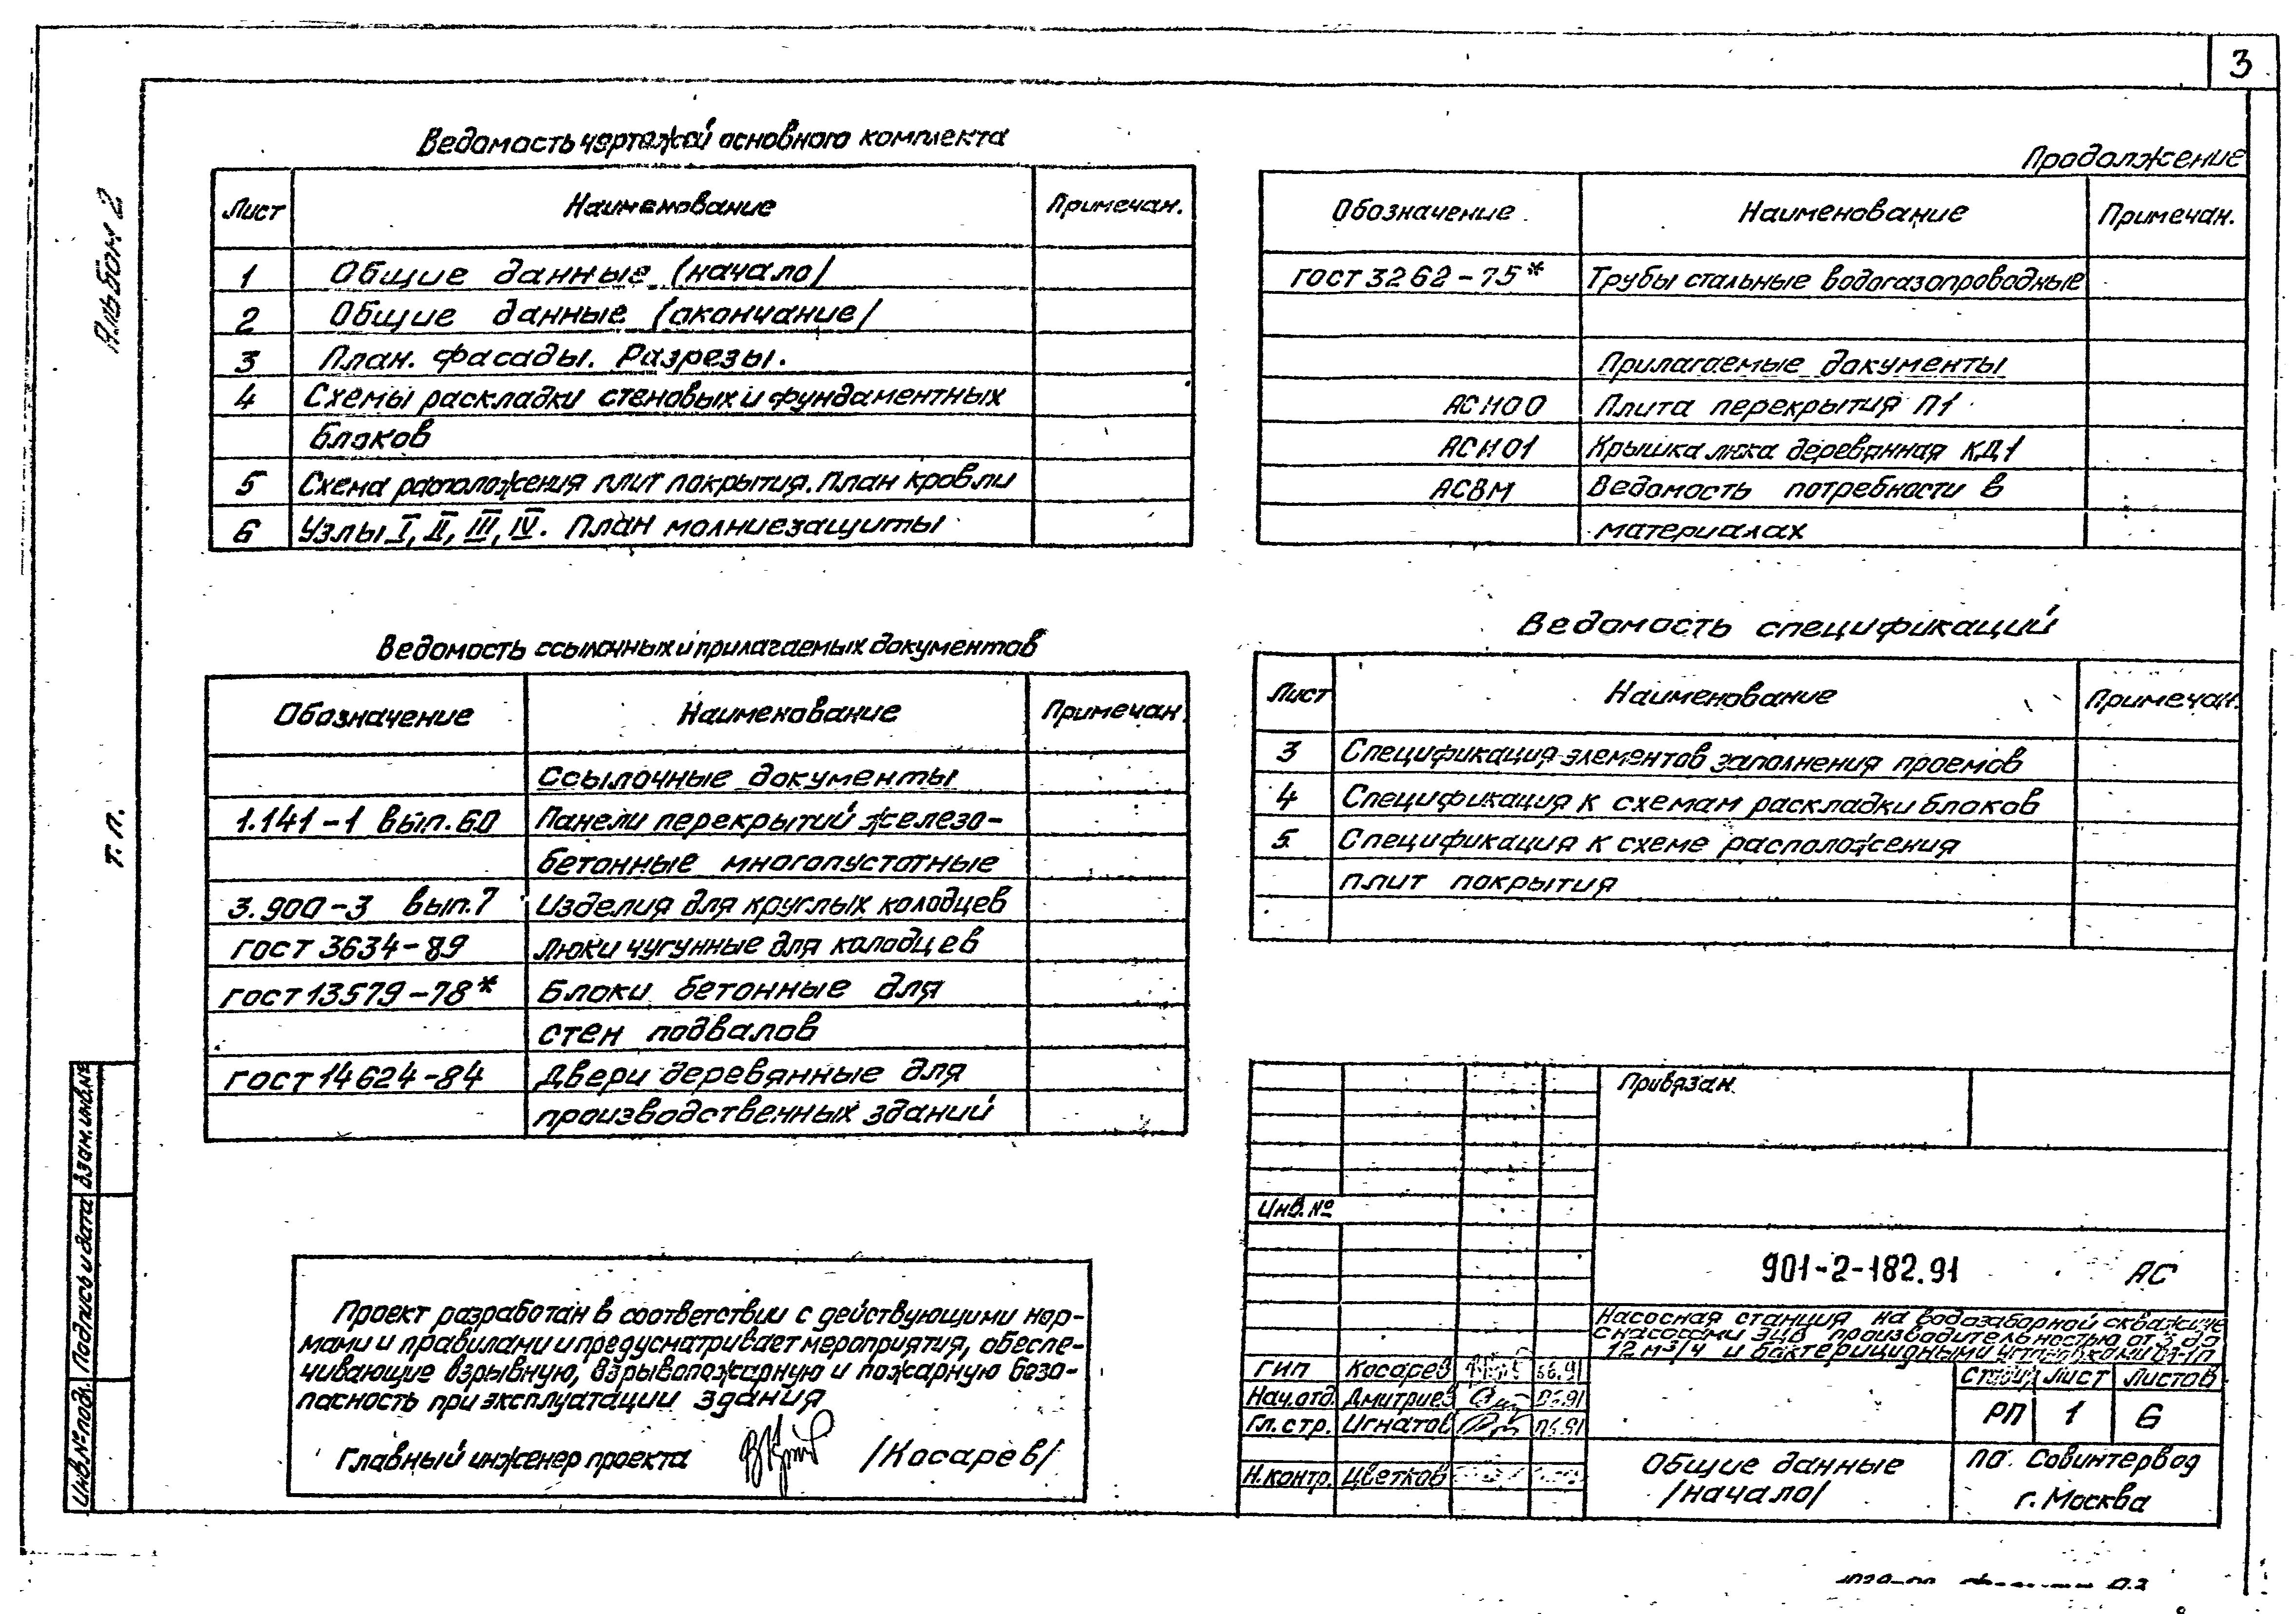 3
Альбом 2
Т. П.
Ведомость чертежей основного комплекта
Лист Наименование Примечан.
1 Общие данные /начало/
2 Общие данные /окончание/
3 План. Фасады. Разрезы.
4 Схемы раскладки стеновых и фундаментных
блоков
5 Схема расположения плит покрытия. План кровли
6 Узлы I, II, III, IV. План молниезащиты
Продолжение
Обозначение Наименование Примечан.
ГОСТ 3262-75* Трубы стальные водогазопроводные
Прилагаемые документы
АСИ00 Плита перекрытия П1
АСИ01 Крышка люка деревянная КД1
АСВМ Ведомость потребности в
материалах
Ведомость ссылочных и прилагаемых документов
Обозначение Наименование Примечан.
Ссылочные документы
1.141-1 вып.60 Панели перекрытий железо-
бетонные многопустотные
3.900-3 вып.7 Изделия для круглых колодцев
ГОСТ 3634-89 Люки чугунные для колодцев
ГОСТ 13579-78* Блоки бетонные для
стен подвалов
ГОСТ 14624-84 Двери деревянные для
производственных зданий
Ведомость спецификаций
Лист Наименование Примечан.
3 Спецификация элементов заполнения проемов
4 Спецификация к схемам раскладки блоков
5 Спецификация к схеме расположения
плит покрытия
Проект разработан в соответствии с действующими нор-
мами и правилами и предусматривает мероприятия, обеспе-
чивающие взрывную, взрывопожарную и пожарную безо-
пасность при эксплуатации здания
Главный инженер проекта /Косарев/
Привязан
Инв. №
901-2-182.91 АС
Насосная станция на водозаборной скважине
с насосами ЭЦВ производительностью от 3 до
12 м³/ч и бактерицидными установками
ГИП Косарев 06.91
Нач.отд. Дмитриев 06.91
Гл.стр. Игнатов 06.91
Н.контр. Цветков
Стадия Лист Листов
РП 1 6
Общие данные
/начало/
ПО Совинтервод
г. Москва
Инв.№ подл. Подпись и дата Взам.инв.№